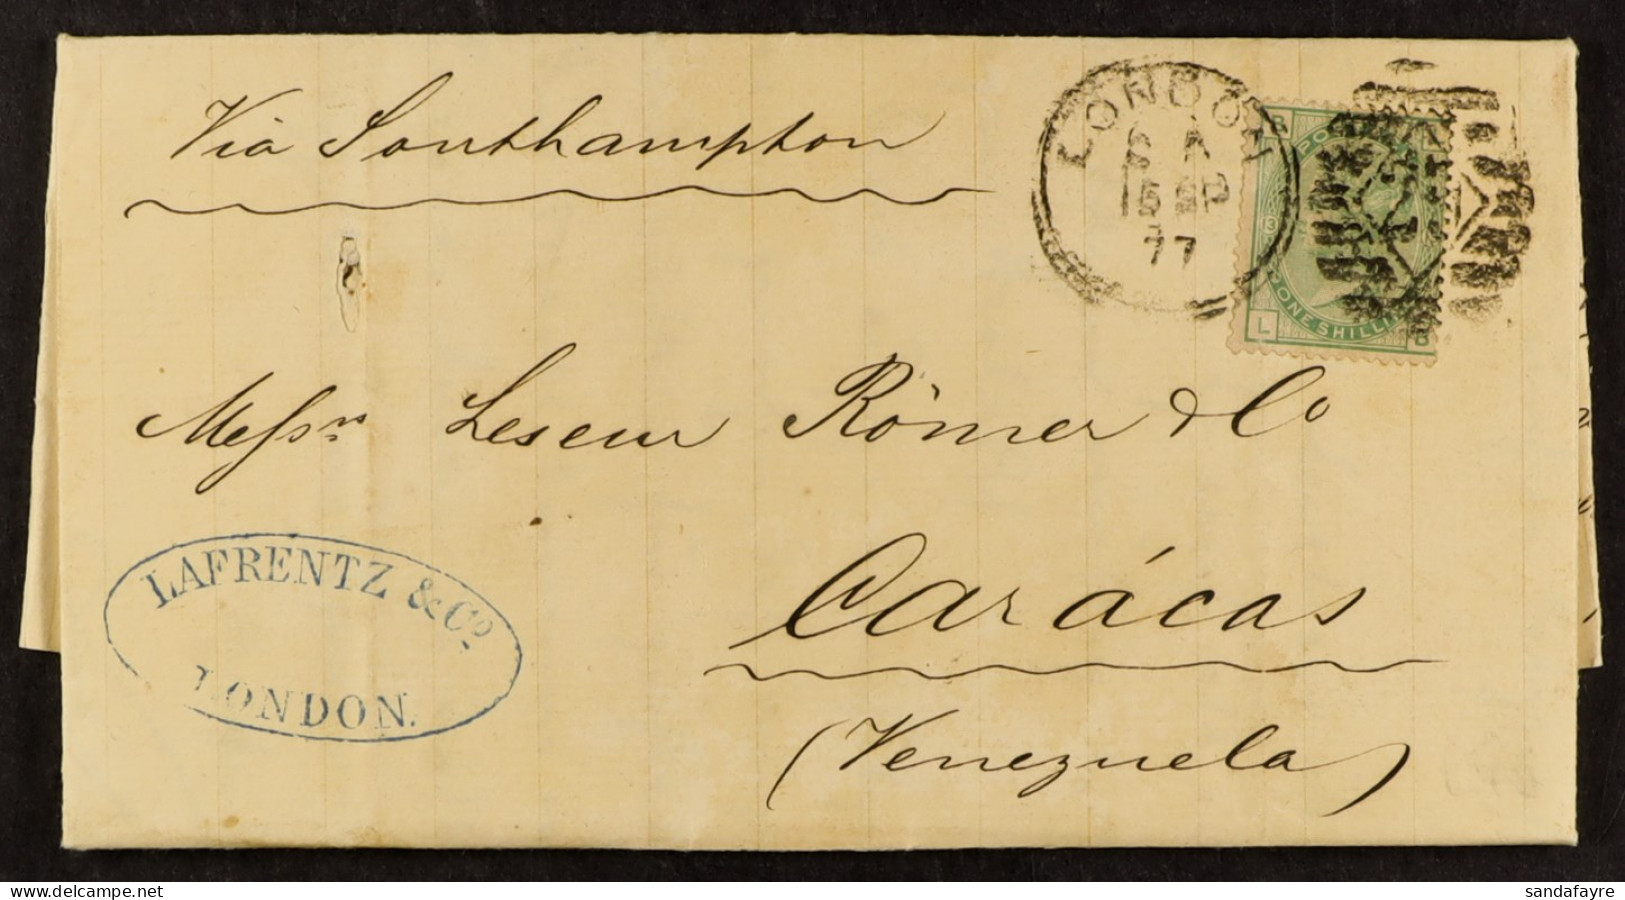 Via Southampton
LONDON
77
POST
ONE SHILLIN
13
L B
Messrs Leseur Römer & Co
Carácas
(Venezuela)
LAFRENTZ & Co.
LONDON.
eBay1901
sandafayre